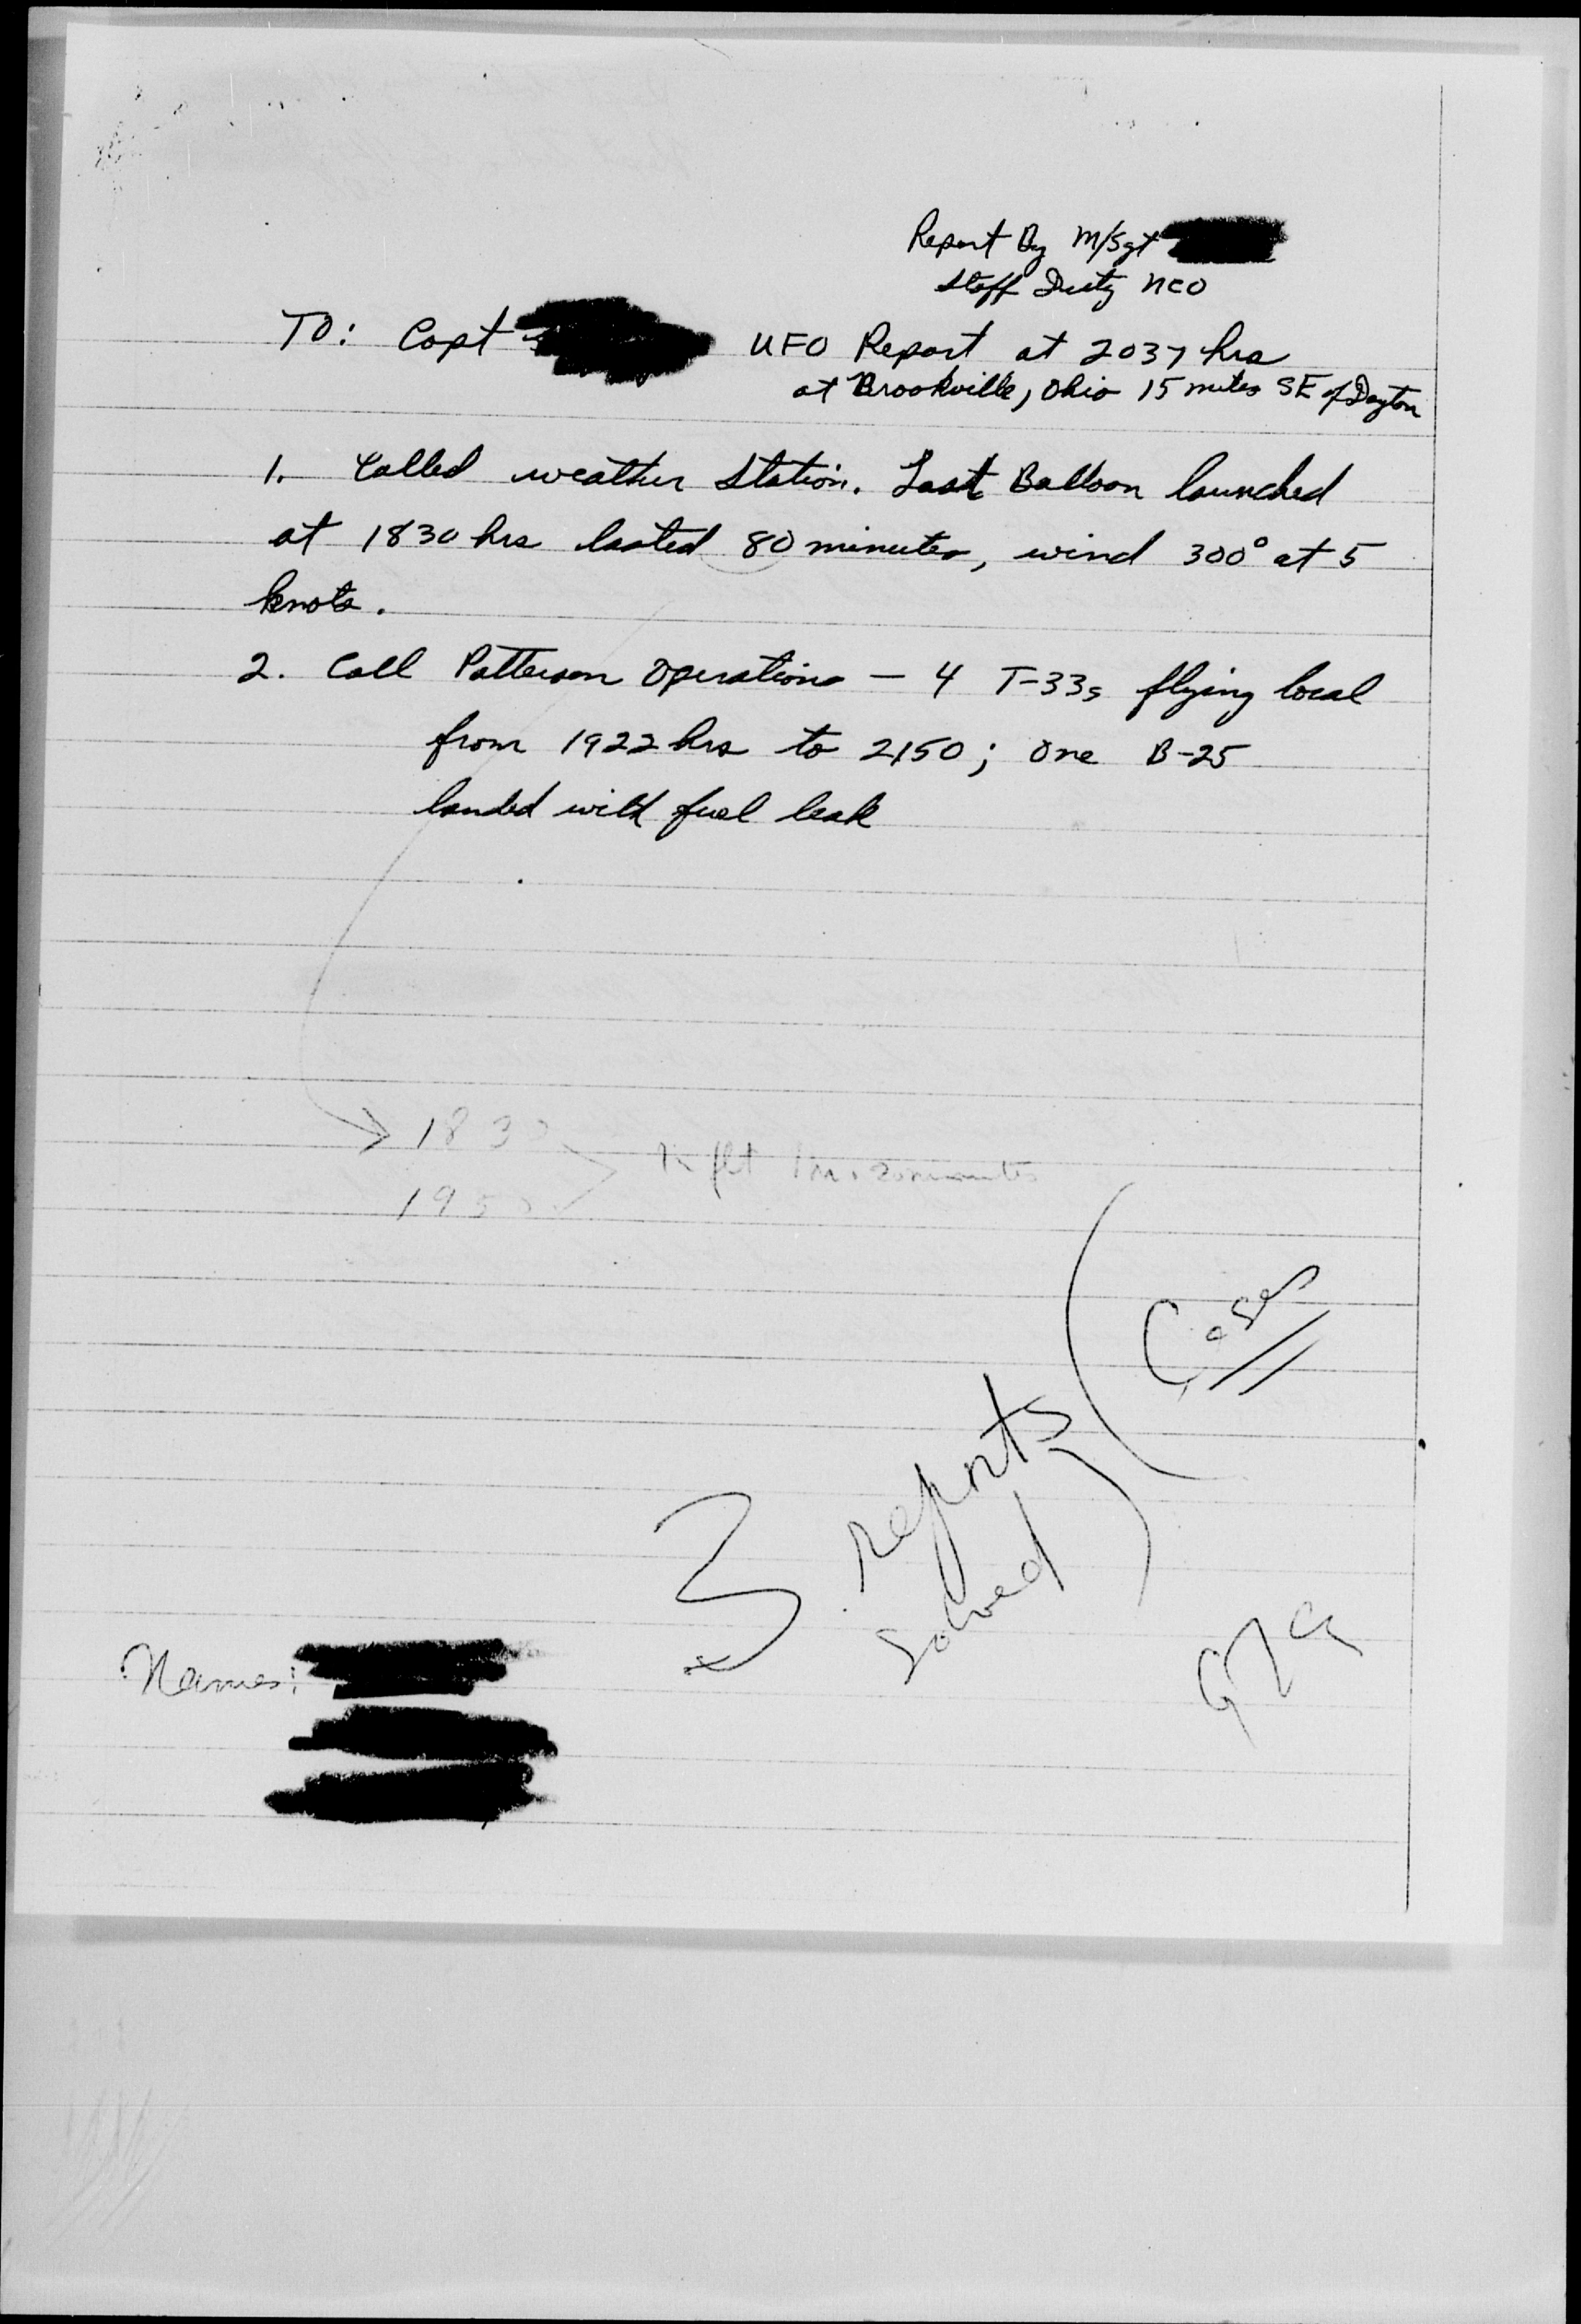 Report By M/Sgt
Staff Duty NCO
TO: Capt
UFO Report at 2037 hrs
at Brookville, Ohio 15 miles SE of Dayton
1. Called weather Station. Last Balloon launched
at 1830 hrs lasted 80 minutes, wind 300° at 5
knots.
2. Call Patterson Operations — 4 T-33s flying local
from 1922 hrs to 2150; One B-25
landed with fuel leak
1830
1950
1 hr. 20 minutes
3 reports (Cases
solved)
Names: